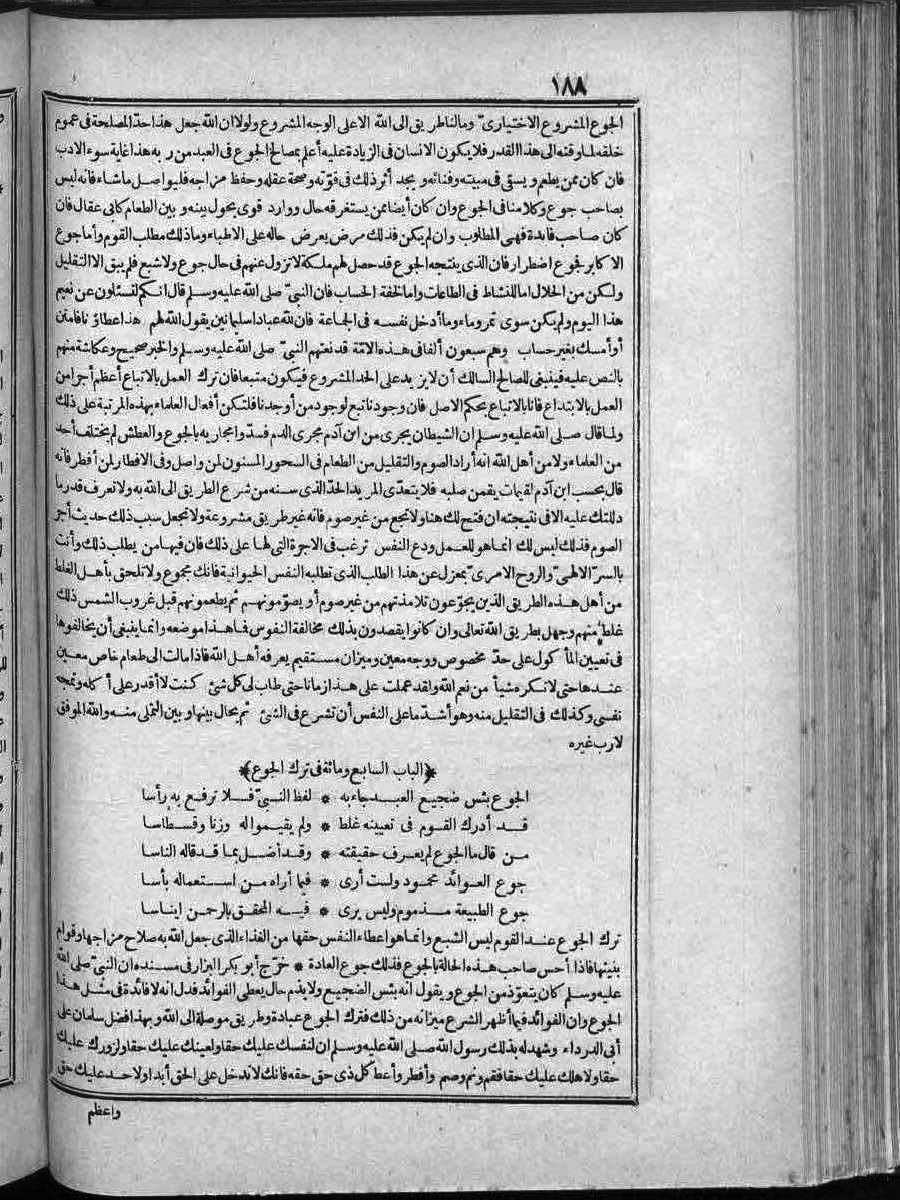 ١٨٨
الجوع المشروع الاختيارى ومالنا طريق الى الله الا على الوجه المشروع ولولا ان الله جعل هذا حد المصلحة فى عموم
خلقه لما وقته الى هذا القدر فلا يكون الانسان فى الزيادة عليه أعلم بمصالح الجوع فى العبد من ربه هذا غاية سوء الادب
فان كان ممن يطعم ويسقى فى مبيته وفنائه ويجد أثر ذلك فى قوته وصحة عقله وحفظ مزاجه فليواصل ماشاء فانه ليس
بصاحب جوع وكلامنا فى الجوع وان كان أيضا ممن يستغرقه حال ووارد قوى يحول بينه وبين الطعام كابى عقال فان
كان صاحب فايدة فهى المطلوب وان لم يكن فذلك مرض يعرض حاله على الاطباء وما ذلك مطلب القوم وأما جوع
الاكابر فجوع اضطرار فان الذى ينتجه الجوع قد حصل لهم ملكة لا تزول عنهم فى حال جوع ولا شبع فلم يبق الا التقليل
ولكن من الحلال اما للنشاط فى الطاعات واما لخفة الحساب فان النبى صلى الله عليه وسلم قال انكم لتسئلون عن نعيم
هذا اليوم ولم يكن سوى تمر وماء وما أدخل نفسه فى الجماعة فان لله عبادا سليمانيين يقول الله لهم هذا عطاؤنا فامنن
أو أمسك بغير حساب وهم سبعون ألفا فى هذه الامة قد نعتهم النبى صلى الله عليه وسلم والخبر صحيح وعكاشة منهم
بالنص عليه فينبغى للصالح السالك أن لا يزيد على الحد المشروع فيكون متبعا فان ترك العمل بالاتباع أعظم أجرا من
العمل بالابتداع فانا بالاتباع بحكم الاصل فان وجودنا تبع لوجود من أوجدنا فلتكن أفعال العلماء بهذه المرتبة على ذلك
ولما قال صلى الله عليه وسلم ان الشيطان يجرى من ابن آدم مجرى الدم فسدوا مجاريه بالجوع والعطش لم يختلف أحد
من العلماء ولا من أهل الله انه أراد الصوم والتقليل من الطعام فى السحور المسنون لمن واصل وفى الافطار لمن أفطر فانه
قال بحسب ابن آدم لقيمات يقمن صلبه فلا يتعدى المريد الحد الذى سنه من شرع الطريق الى الله به ولا تعرف قدر ما
دللتك عليه الا فى نتيجته ان فتح لك هنا ولا تجع من غير صوم فانه غير طريق مشروعة ولا تجعل سبب ذلك حديث أجر
الصوم فذلك ليس لك انما هو للعمل ودع النفس ترغب فى الاجرة التى لها على ذلك فان فيها من يطلب ذلك وأنت
بالسر الالهى والروح الامرى بمعزل عن هذا الطلب الذى تطلبه النفس الحيوانية فانك مجموع ولا تلحق بأهل الغلط
من أهل هذه الطريق الذين يجوعون تلامذتهم من غير صوم أو يصومونهم ثم يطعمونهم قبل غروب الشمس ذلك
غلط منهم وجهل بطريق الله تعالى وان كانوا يقصدون بذلك مخالفة النفوس فما هذا موضعه وانما ينبغى أن يخالفوها
فى تعيين المأكول على حد مخصوص ووجه معين وميزان مستقيم يعرفه أهل الله فاذا مالت الى طعام خاص معين
عندها حتى لا نكره شيأ من نعم الله ولقد عملت على هذا زمانا حتى طاب لى كل شئ كنت لا أقدر على أكله وتمجه
نفسى وكذلك فى التقليل منه وهو أشد ما على النفس أن تشرع فى الشئ ثم يحال بينها وبين التملى منه والله الموفق
لا رب غيره
﴿الباب السابع ومائة فى ترك الجوع﴾
الجوع بئس ضجيع العبد جاء به * لفظ النبى فلا ترفع به رأسا
قد أدرك القوم فى تعيينه غلط * ولم يقيموا له وزنا وقسطاسا
من قال ما الجوع لم يعرف حقيقته * وقد أضل بما قد قاله الناسا
جوع العوائد محمود ولست أرى * فيما أراه من استعماله بأسا
جوع الطبيعة مذموم وليس يرى * فيه المحقق بالرحمن ايناسا
ترك الجوع عند القوم ليس الشبع وانما هو اعطاء النفس حقها من الغذاء الذى جعل الله به صلاح مزاجها وقوام
بنيتها فاذا أحس صاحب هذه الحالة بالجوع فذلك جوع العادة * خرج أبو بكر البزار فى مسنده ان النبى صلى الله
عليه وسلم كان يتعوذ من الجوع ويقول انه بئس الضجيع ولا يذم حال يعطى الفوائد فدل انه لا فائدة فى مثل هذا
الجوع وان الفوائد فيما أظهر الشرع ميزانه من ذلك فترك الجوع عبادة وطريق موصلة الى الله وبهذا فضل سلمان على
أبى الدرداء وشهد له بذلك رسول الله صلى الله عليه وسلم ان لنفسك عليك حقا ولعينك عليك حقا ولزورك عليك
حقا ولاهلك عليك حقا فقم ونم وصم وأفطر وأعط كل ذى حق حقه فانك لا تدخل على الحق أبدا ولاحد عليك حق
واعظم